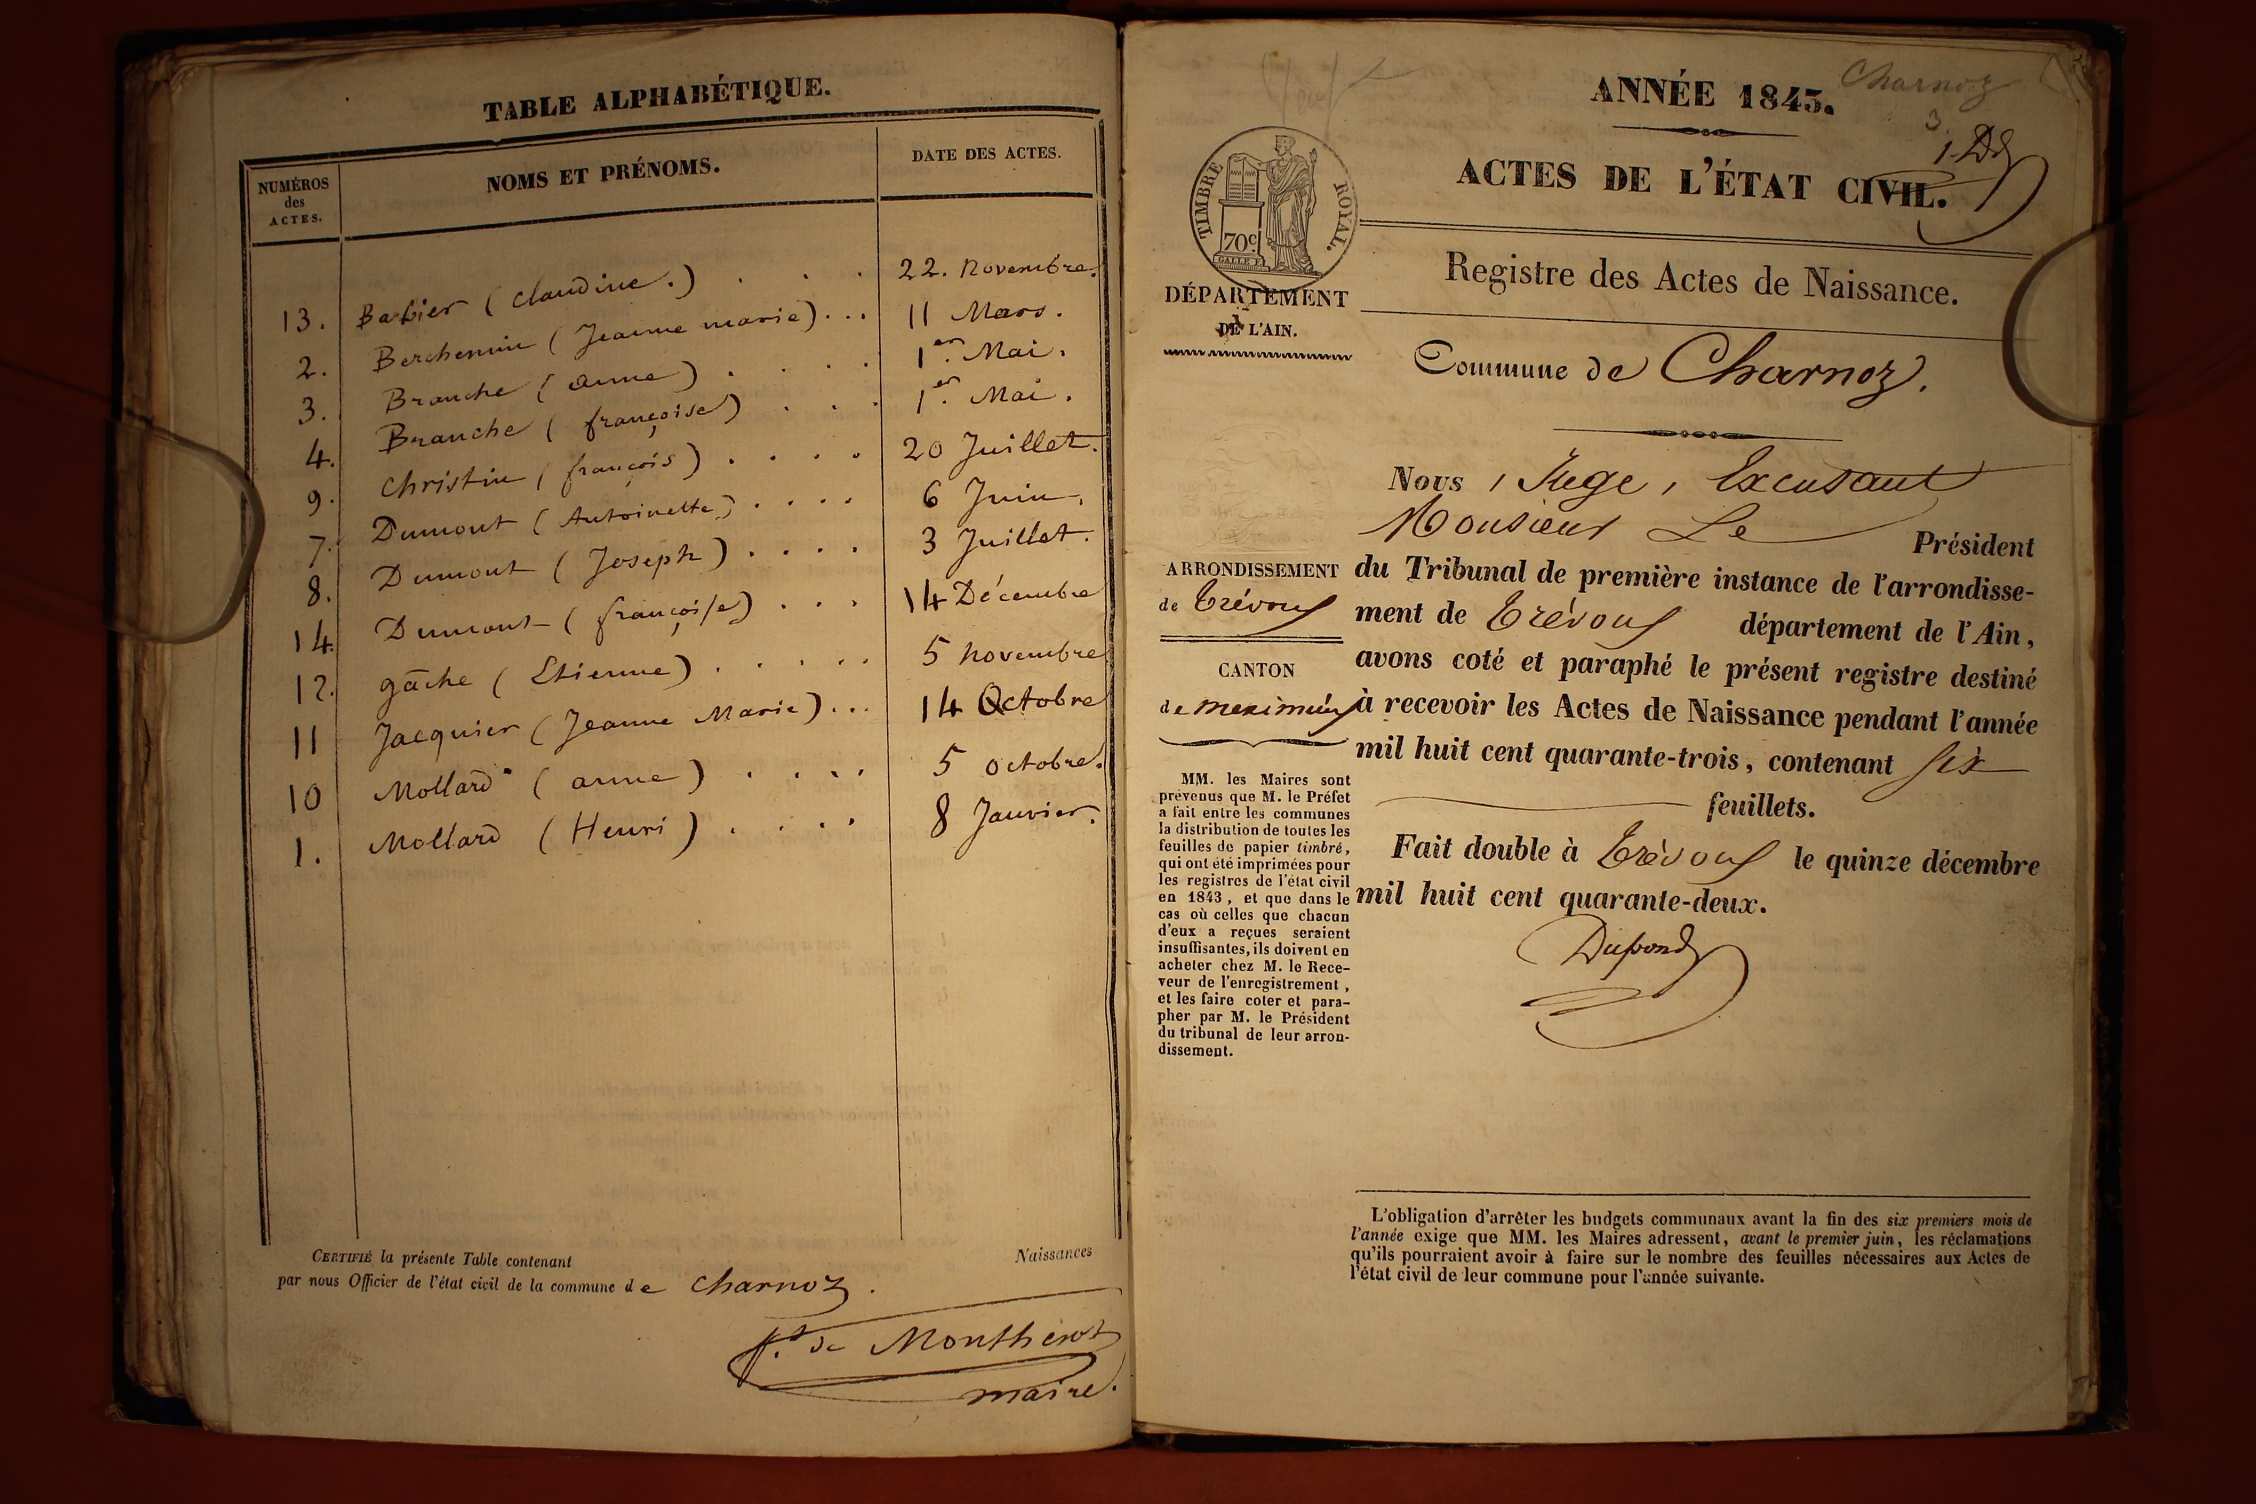 TABLE ALPHABÉTIQUE.
NUMÉROS
des
ACTES.
NOMS ET PRÉNOMS.
DATE DES ACTES.
13. Barbier (Claudine.) . . . 22. Novembre.
2. Berchemin (Jeanne marie) . . . 11 Mars.
3. Branche (anne) . . . . 1er. Mai.
4. Branche (françoise) . . . 1er. Mai.
9. Christin (françois) . . . . 20 Juillet.
7. Dumont (Antoinette) . . . . 6 Juin.
8. Dumont (Joseph) . . . . 3 Juillet.
14. Dumont (françoise) . . . 14 Décembre
12. gâche (Etienne) . . . . . 5 Novembre
11 Jacquier (Jeanne Marie) . . . 14 Octobre
10 Mollard (anne) . . . . 5 octobre.
1. Mollard (Henri) . . . . 8 Janvier.
CERTIFIÉ la présente Table contenant Naissances
par nous Officier de l'état civil de la commune de Charnoz.
de Monthérot
maire.
Charnoz
ANNÉE 1843.
3.
1.
ACTES DE L'ÉTAT CIVIL.
TIMBRE ROYAL.
70c
DÉPARTEMENT
DE L'AIN.
Registre des Actes de Naissance.
Commune de Charnoz.
Nous, Juge, Excusant
Monsieur Le Président
ARRONDISSEMENT
de Trévoux
CANTON
de meximieux
du Tribunal de première instance de l'arrondisse-
ment de Trévoux département de l'Ain,
avons coté et paraphé le présent registre destiné
à recevoir les Actes de Naissance pendant l'année
mil huit cent quarante-trois, contenant six
feuillets.
Fait double à Trévoux le quinze décembre
mil huit cent quarante-deux.
Dupond
MM. les Maires sont
prévenus que M. le Préfet
a fait entre les communes
la distribution de toutes les
feuilles de papier timbré,
qui ont été imprimées pour
les registres de l'état civil
en 1843, et que dans le
cas où celles que chacun
d'eux a reçues seraient
insuffisantes, ils doivent en
acheter chez M. le Rece-
veur de l'enregistrement,
et les faire coter et para-
pher par M. le Président
du tribunal de leur arron-
dissement.
L'obligation d'arrêter les budgets communaux avant la fin des six premiers mois de
l'année exige que MM. les Maires adressent, avant le premier juin, les réclamations
qu'ils pourraient avoir à faire sur le nombre des feuilles nécessaires aux Actes de
l'état civil de leur commune pour l'année suivante.